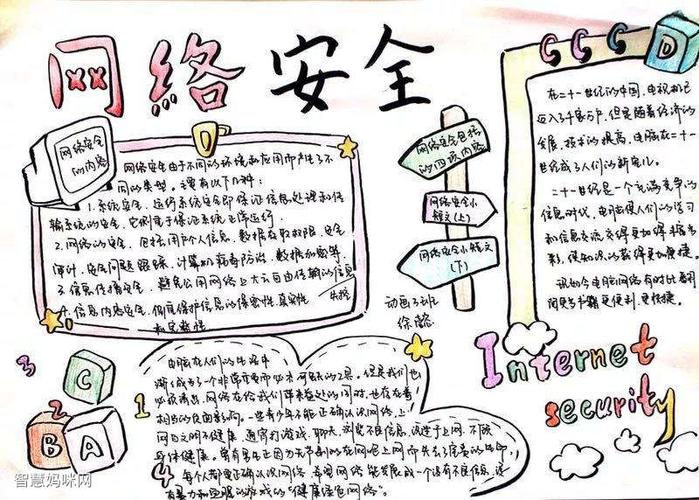 网络安全
网络安全
的内容
D
网络安全由于不同的环境和应用而产生了不
同的类型。主要有以下几种：
1.系统安全。运行系统安全即保证信息处理和传
输系统的安全。它侧重于保证系统正常运行。
2.网络的安全。包括用户个人信息，数据存取权限，安全
审计，安全问题跟踪，计算机病毒防治，数据加密等。
3.信息传播安全。避免公用网络上大云自由传输的信息
失控
4.信息内容安全。侧重保护信息的保密性、真实性
和完整性
网络安全包括
的四项内容
网络安全小
短文(上)
网络安全小短文
(下)
动画
徐
D
在二十一世纪的中国，电视机已
迈入了千家万户，但是随着经济的
发展，技术的提高，电脑在二十一
世纪成了人们的新宠儿。
二十一世纪是一个充满竞争的
信息时代，电脑使人们的学习
和信息交流变得更加丰
彩，使知识的获得更加便捷。
现如今电脑网络有时比翻阅
更便利，更快捷。
Internet
security
3
C
2
B
A
1
4
电脑在人们的生活中
渐渐成为了一个非常重要而必不可缺的工具。但是我们也
必须清楚，网络在给我们带来益处的同时，也存在着
相当的负面影响。一些青少年不能正确认识网络，上
网目的不健康，通宵打游戏，聊天，浏览不良信息，沉迷于上网，不顾
身体健康。
每个人都要正确认识网络，希望网络能发展成一个没有不良信息，没
有暴力和血腥的游戏的“健康绿色网络”。
智慧妈咪网